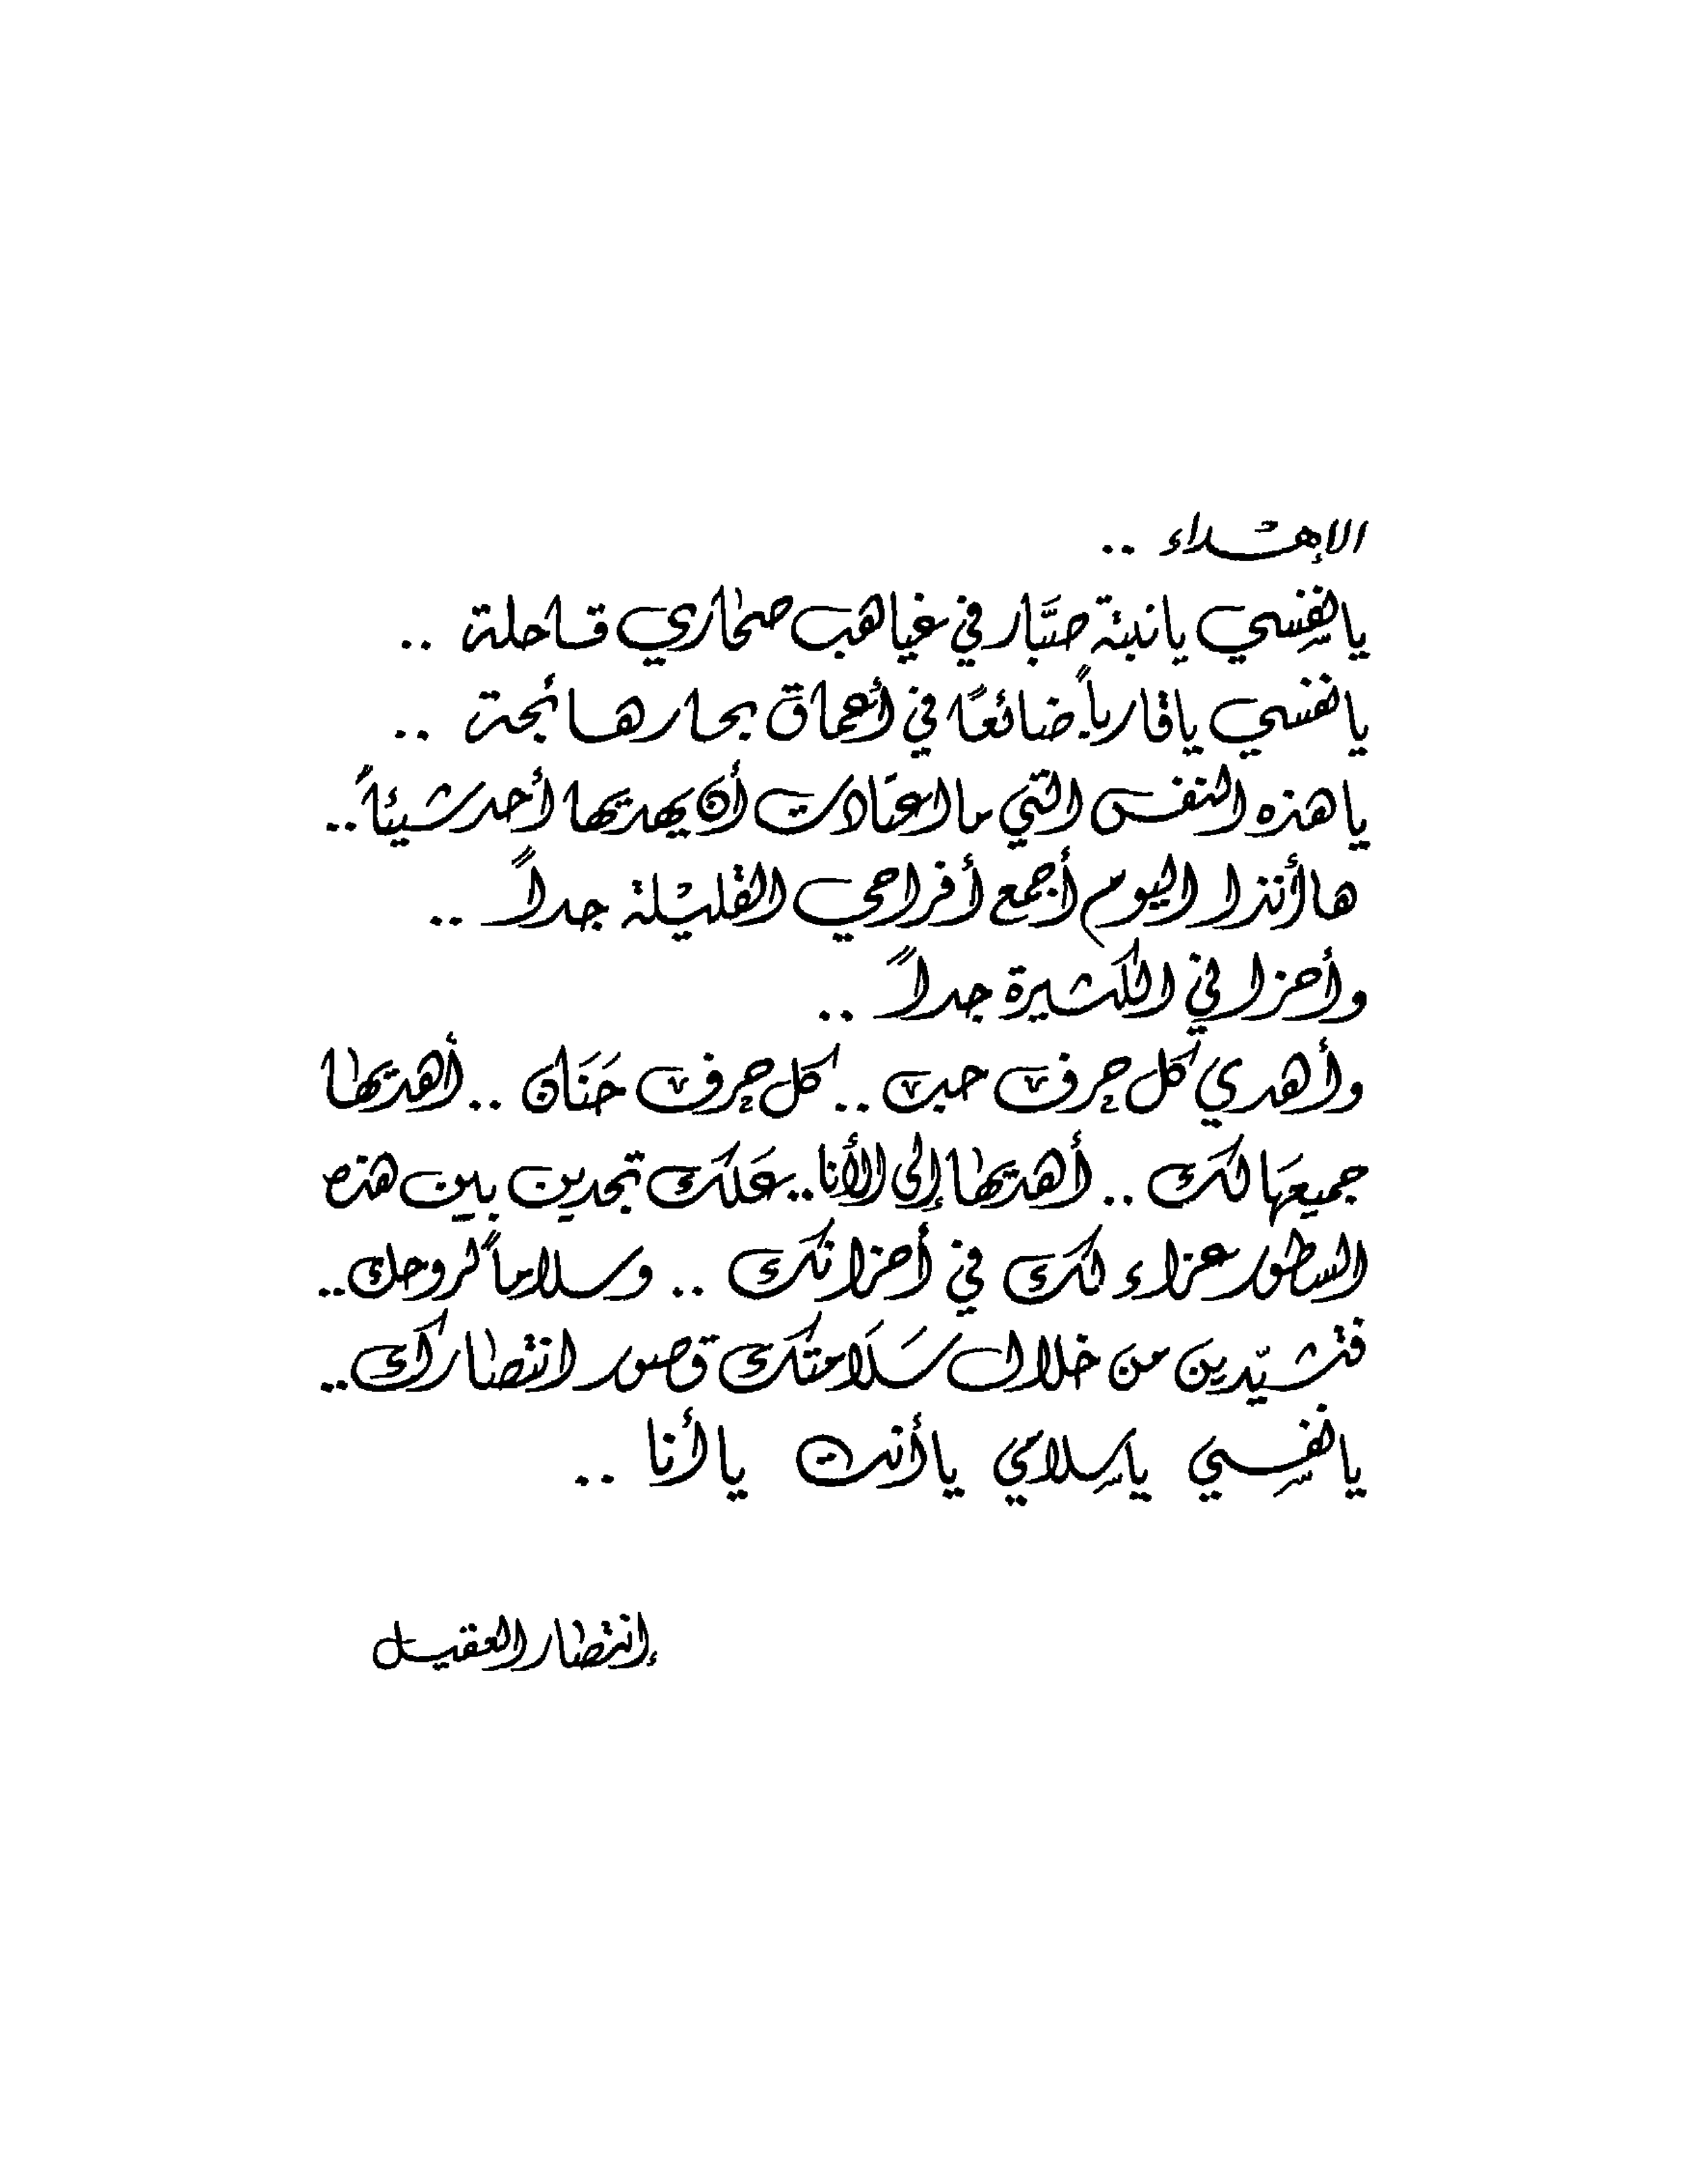 الإهداء ..
يا نفسي يا نبتة صبَّار في غياهب صحاري قاحلة ..
يا نفسي يا قارباً ضائعًا في أعماق بحار هائجة ..
يا هذه النفس التي ما اعتادت أن يهديها أحد شيئاً ..
ها أنذا اليوم أجمع أفراحي القليلة جداً ..
وأحزاني الكثيرة جداً ..
وأهدي كل حرف حب .. كل حرف حَنَان .. أهديها
جميعَها لك .. أهديها إلى الأنا .. عَلك تجدين بين هذه
السطور عزاء لك في أحزانك .. وسلاماً لروحك ..
فتشيّدين من خلال سَلَامتك قصور انتصارك ..
يا نفسِي يا سِلامي يا أنت يا أنا ..
إنتصار العقيل